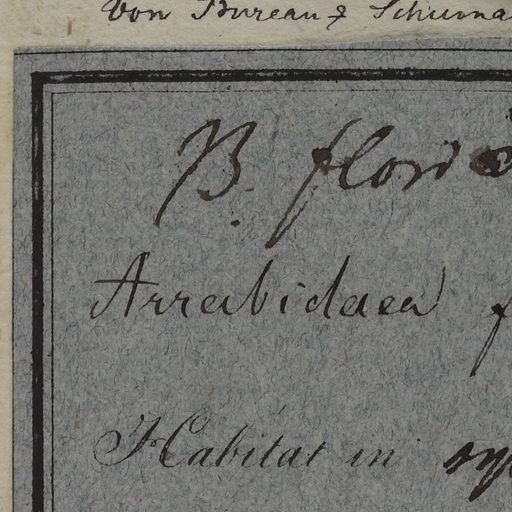 Von Bureau & Schuma
B. flori
Arrabidaea f
Habitat in sy